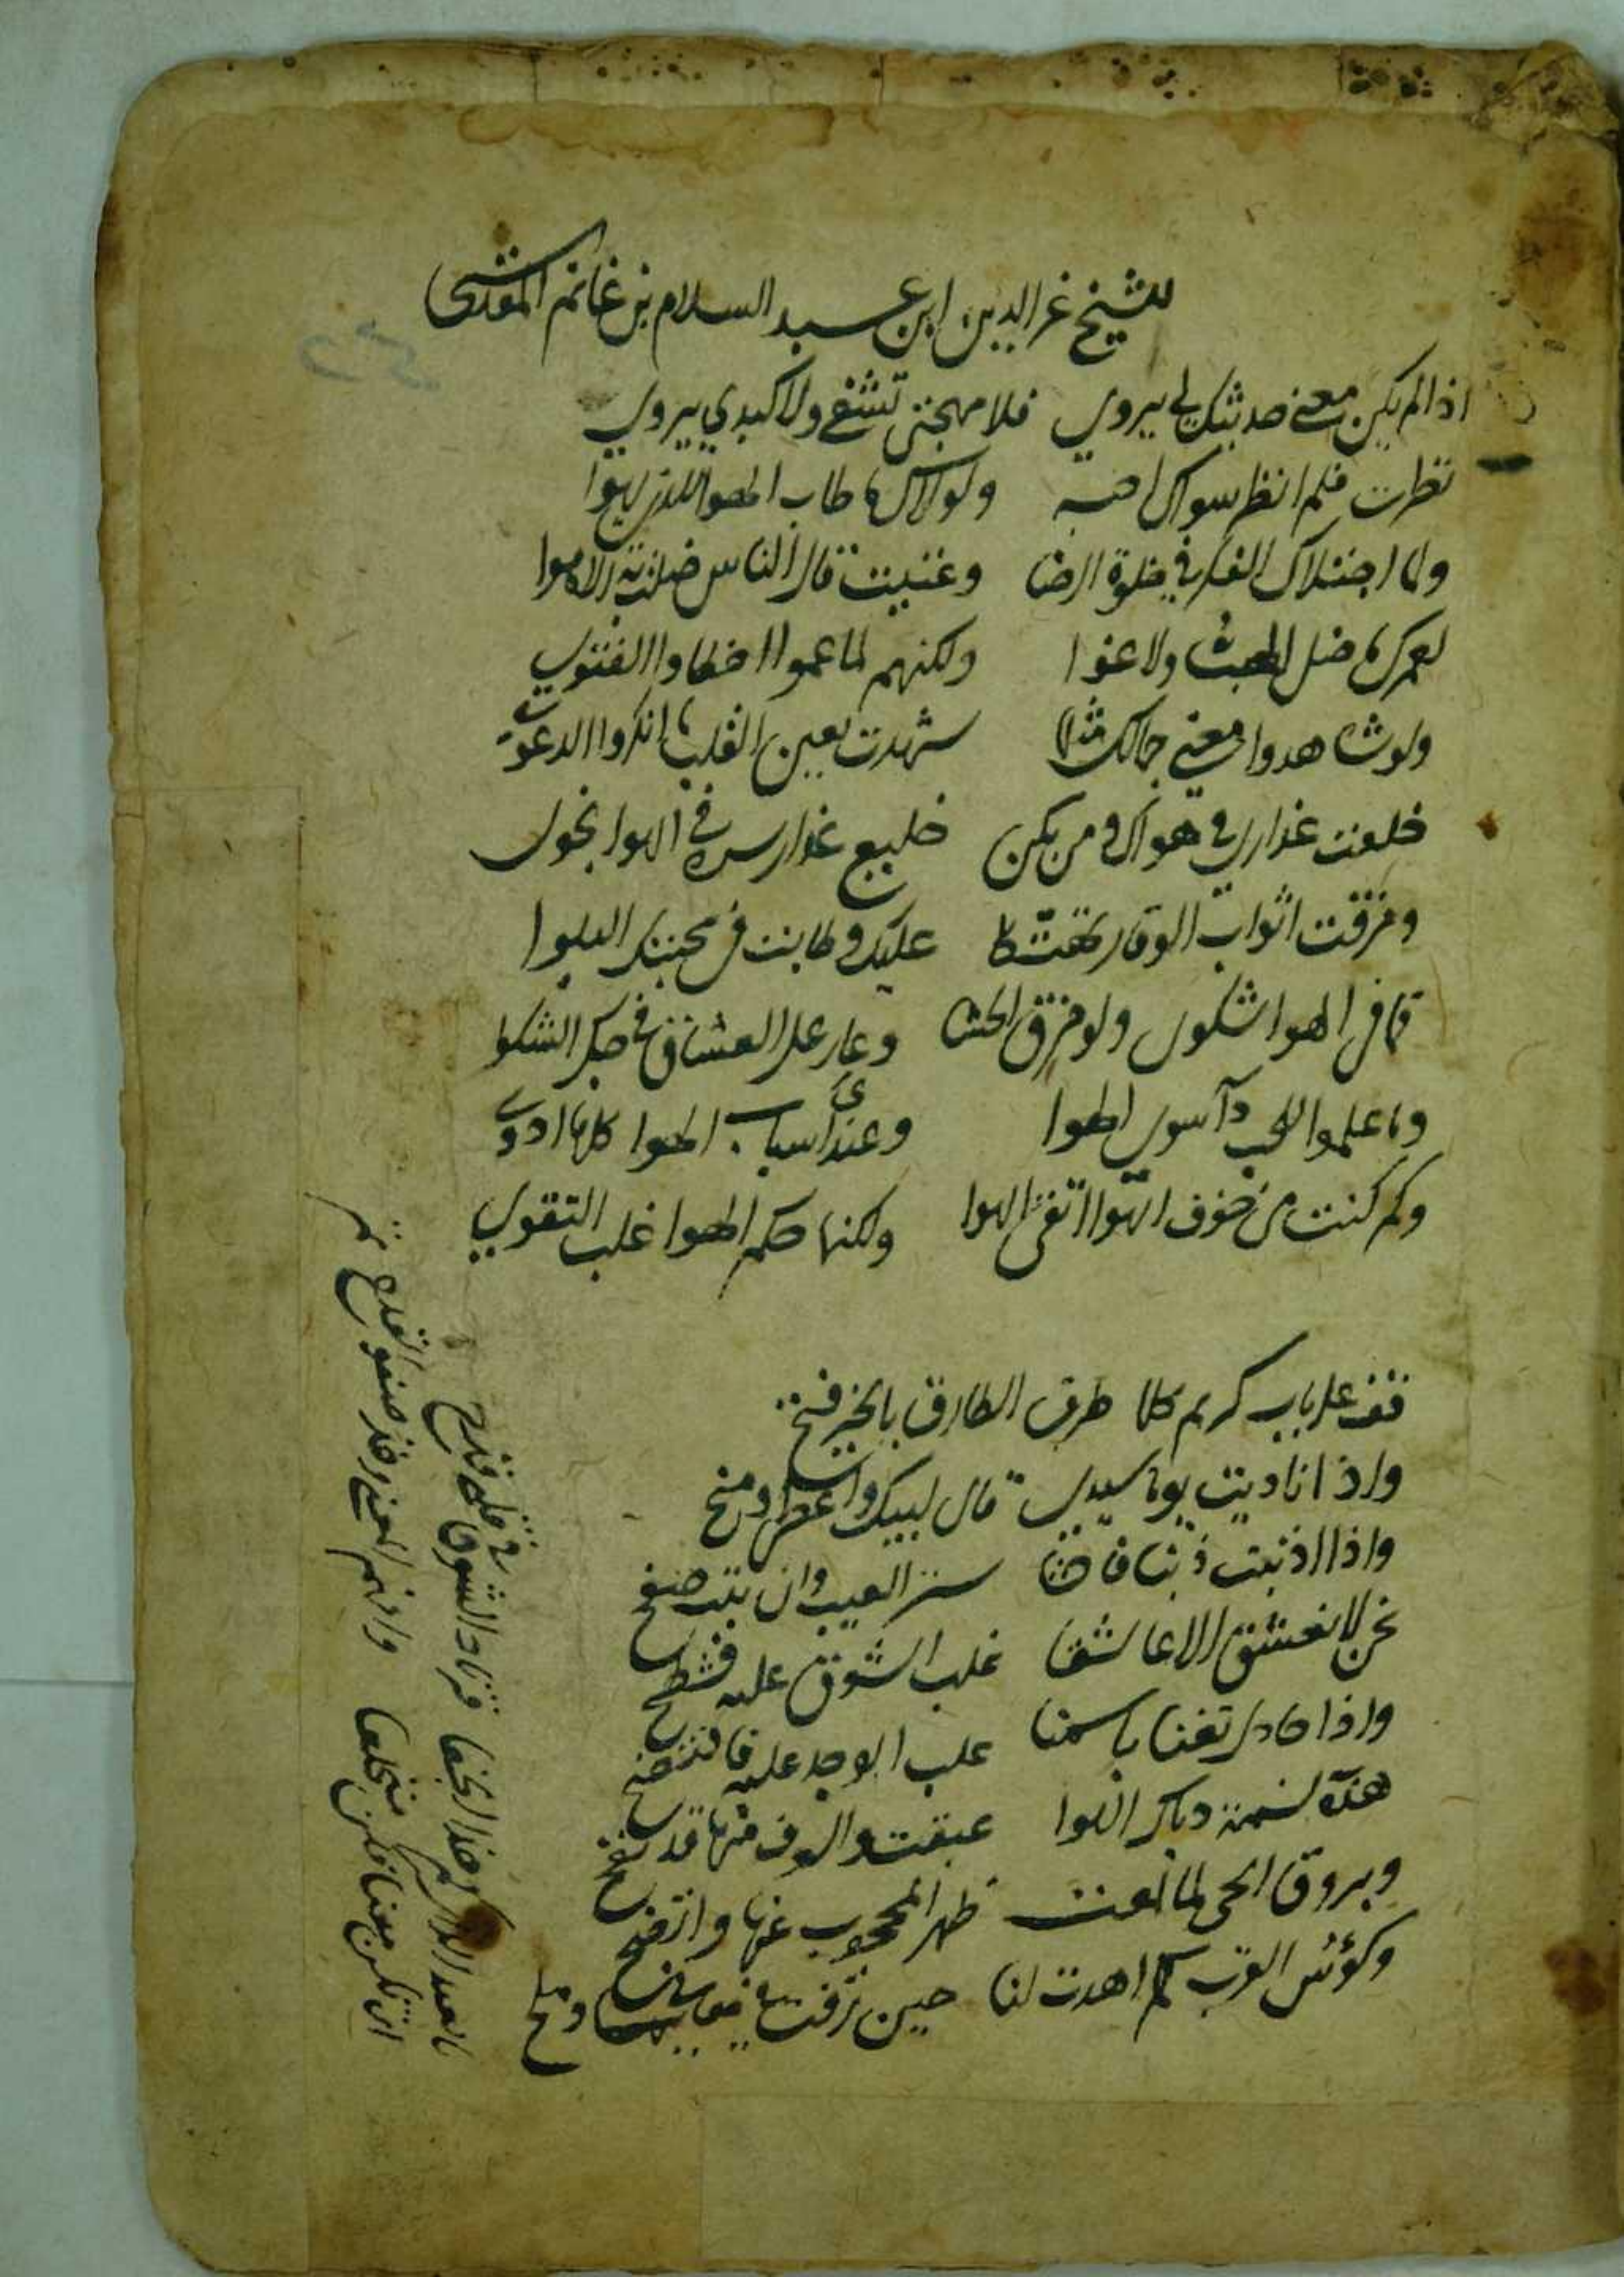 للشيخ غر الدين ابن عبد السلام بن غانم المقدسي
اذا لم يكن معنى حديثك لي يروي فلا مهجتي تشفي ولا كبدي يروي
نظرت فلم انظر سواك احبه ولولاك ما طاب الهوا للذي يهوا
ولما اجتلاك الفكر في خلوة الرضا وغنيت قال الناس ضلت به الاهوا
لعمرك ما ضل المحب ولا غوا ولكنهم لما عموا اخطاوا الفتوى
ولو شاهدوا معنى جمالك مثلما شهدت بعين القلب ما انكروا الدعوى
خلعت عذاري في هواك ومن يكن خليع عذار سره في الهوا نجوى
ومزقت اثواب الوقار تهتكا عليك وطابت في محبتك البلوا
فما في الهوا شكوى ولو مزق الحشا وعار على العشاق في حبك الشكوا
وما علموا للحب دآ سوى الهوا وعندي أسباب الهوا كلها ادوى
وكم كنت من خوف الهوا اتقي الهوا ولكنما حكم الهوا غلب التقوى
قف على باب كريم كلما طرق الطارق بالخير فتح
واذا ناديت يوما سيدي قال لبيك واعطى ومنح
واذا اذنبت ذنبا فاحشا ستر العيب وان تبت صفح
نحن لا نعشق الا عاشقا غلب الشوق عليه فشطح
واذا حادي تغنا باسمنا غلب الوجد عليه فافتضح
هذه نسمة دياك اللوا عبقت والعرف منها قد نفح
وبروق الحي لما لمعت ظهر المحجوب عنها واتضح
وكؤس القرب كم اهدت لنا حين رقت معانيها وملح
ما لعبد الدار وهذا الجفا وزناد الشوق في قلبي قدح
ان تكن معنا فكن منخلعا وافهم المعنى وخذ صفو القدح تم